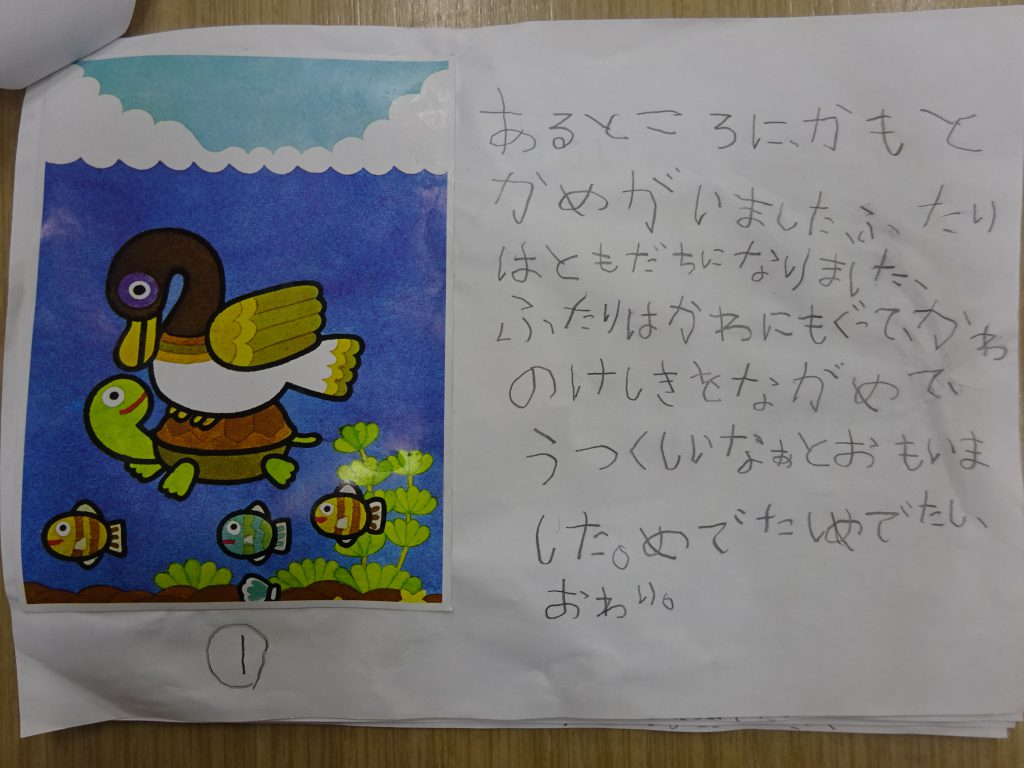 あるところに、かもと
かめがいました、ふたり
はともだちになりました、
ふたりはかわにもぐって、かわ
のけしきとながめて、
うつくしいなぁとおもいま
した。めでたしめでたし、
おわり。
1